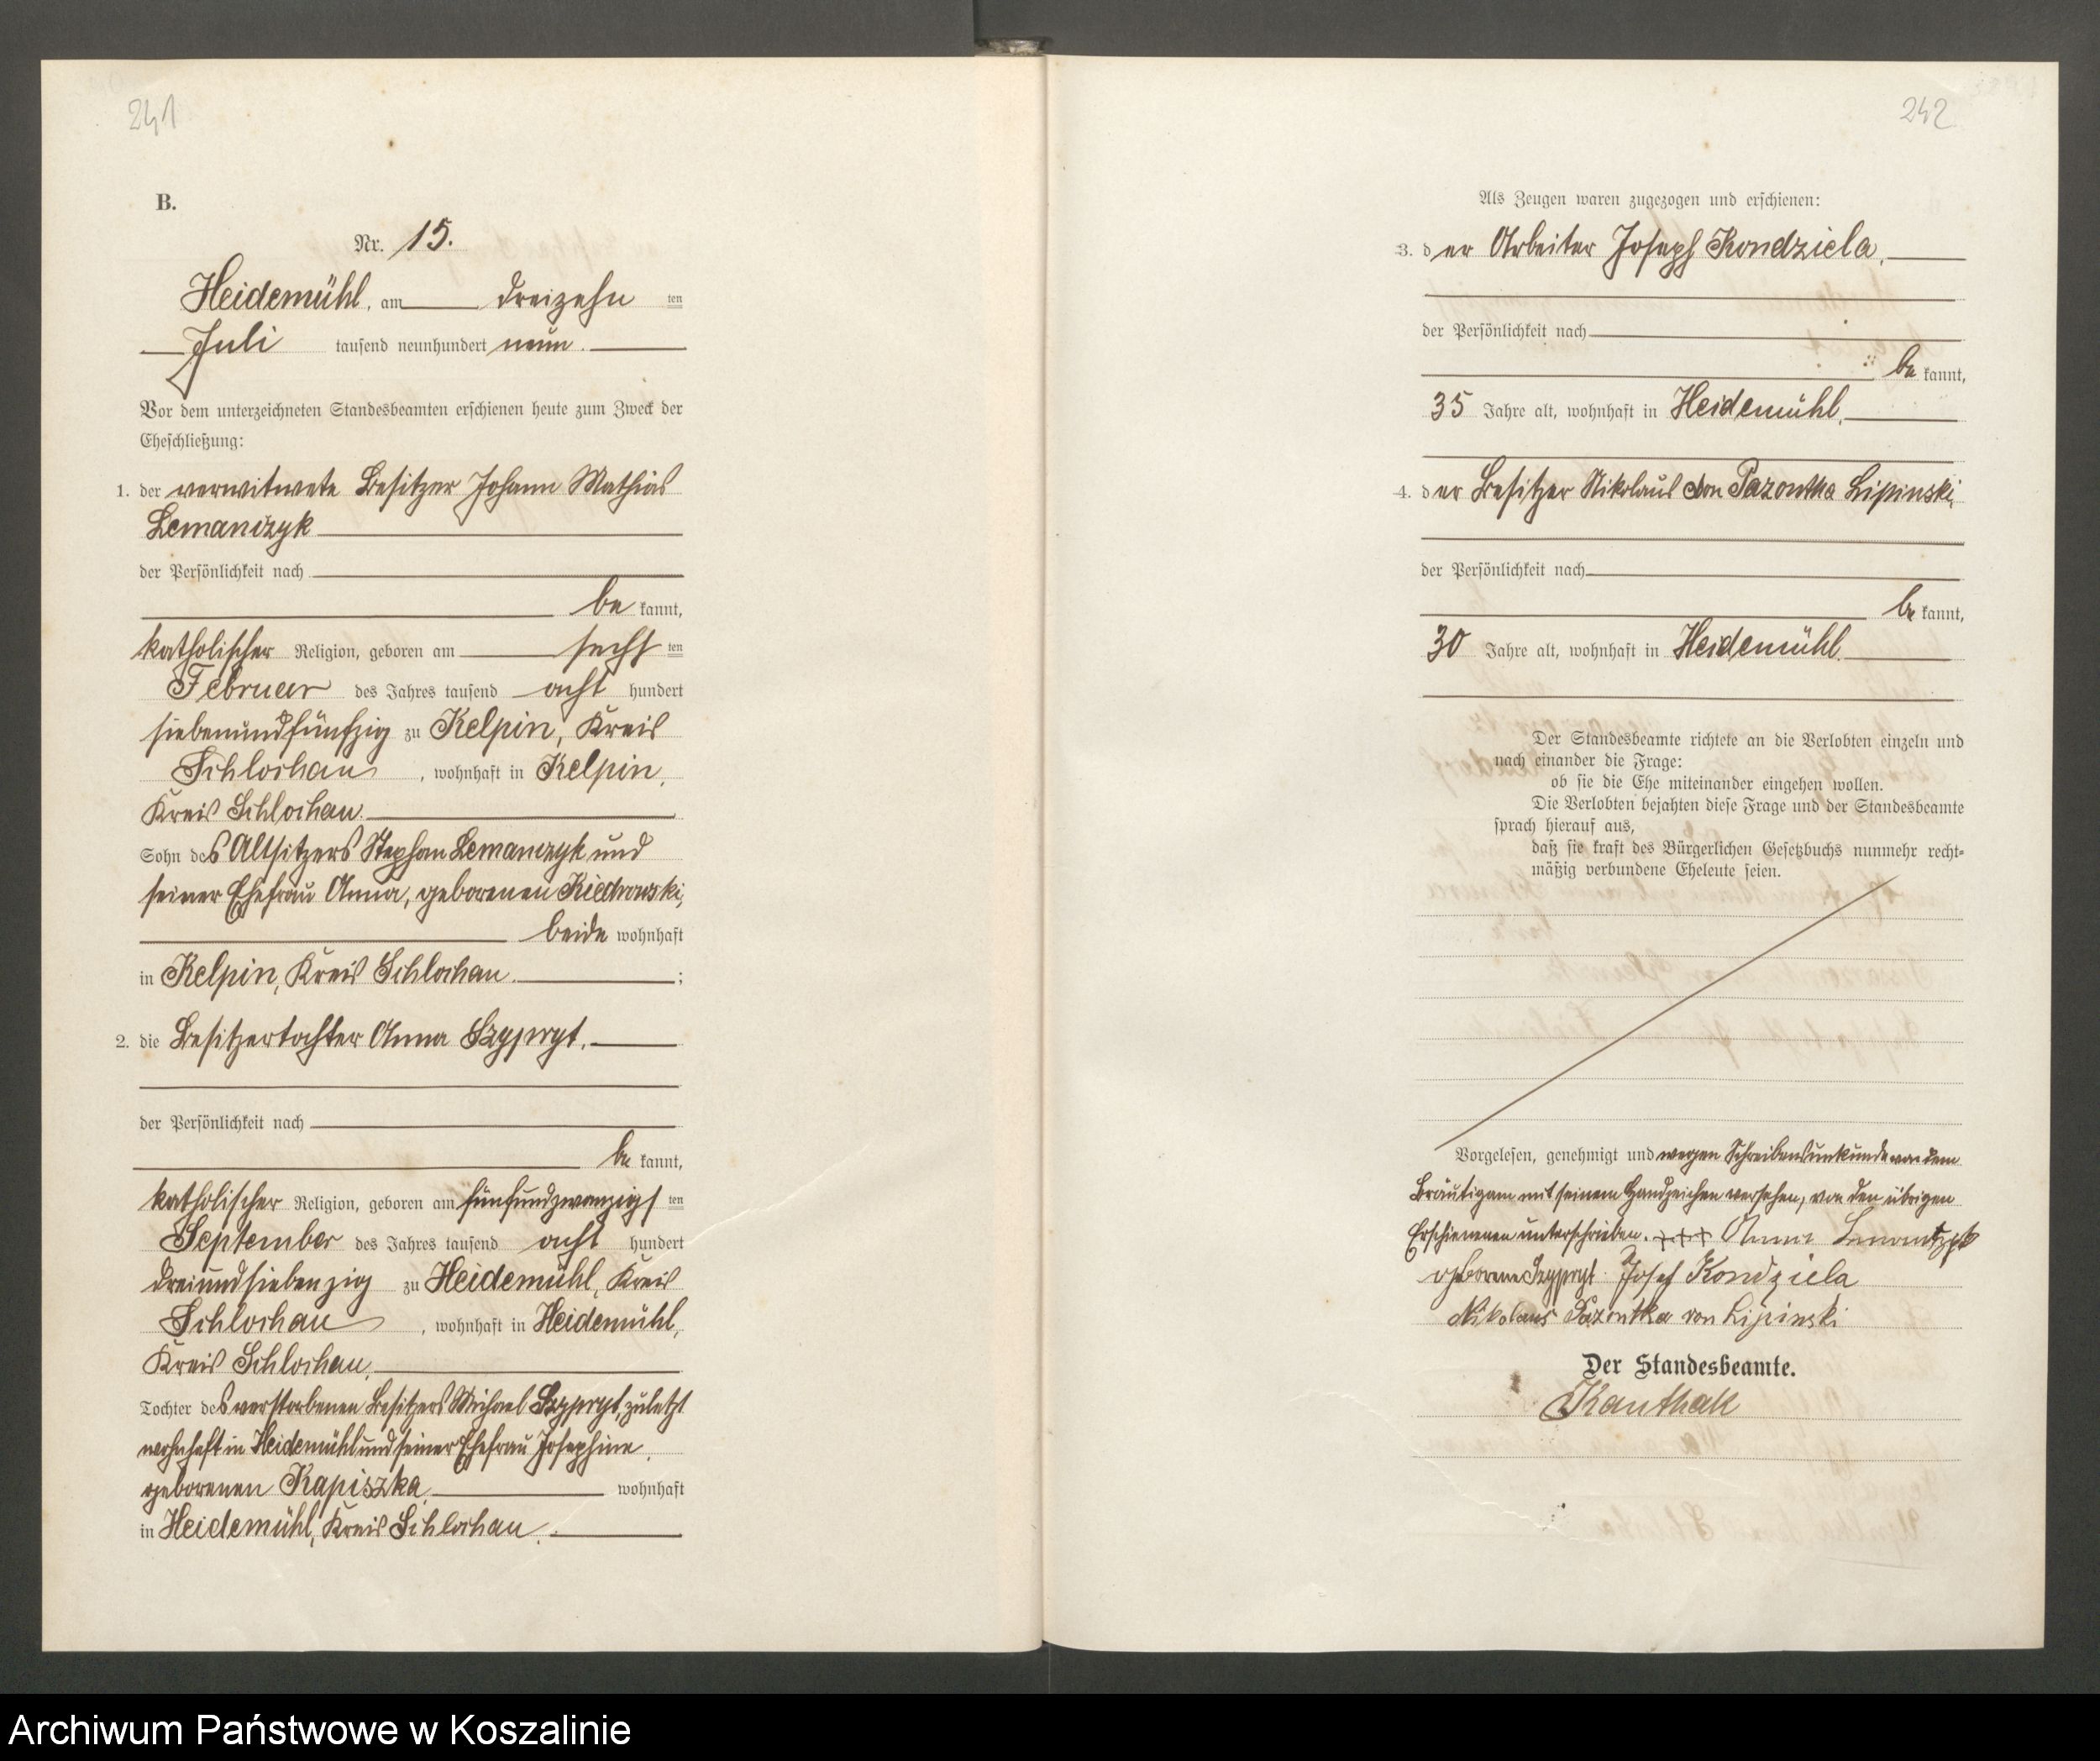 241
B.
Nr. 15.
Heidemühl, am dreizehn ten
Juli tausend neunhundert neun.
Vor dem unterzeichneten Standesbeamten erschienen heute zum Zweck der
Eheschließung:
1. der verwitwete Besitzer Johann Mathias
Lemanczyk
der Persönlichkeit nach
be kannt,
katholischer Religion, geboren am sechs ten
Februar des Jahres tausend acht hundert
siebenundfünfzig zu Kelpin, Kreis
Schlochau, wohnhaft in Kelpin,
Kreis Schlochau.
Sohn des Altsitzers Stephan Lemanczyk und
seiner Ehefrau Anna, geborenen Kiedrowski,
beide wohnhaft
in Kelpin, Kreis Schlochau. ;
2. die Besitzertochter Anna Szypryt,
der Persönlichkeit nach
be kannt,
katholischer Religion, geboren am fünfundzwanzigs ten
September des Jahres tausend acht hundert
dreiundsiebenzig zu Heidemühl, Kreis
Schlochau, wohnhaft in Heidemühl,
Kreis Schlochau,
Tochter des verstorbenen Besitzers Michael Szypryt, zuletzt
wohnhaft in Heidemühl und seiner Ehefrau Josephine,
geborenen Kapiszka, wohnhaft
in Heidemühl, Kreis Schlochau.
242
Als Zeugen waren zugezogen und erschienen:
3. der Arbeiter Joseph Kondziela,
der Persönlichkeit nach
be kannt,
35 Jahre alt, wohnhaft in Heidemühl,
4. der Besitzer Nikolaus von Pazontka Lipinski,
der Persönlichkeit nach
be kannt,
30 Jahre alt, wohnhaft in Heidemühl.
Der Standesbeamte richtete an die Verlobten einzeln und
nach einander die Frage:
ob sie die Ehe miteinander eingehen wollen.
Die Verlobten bejahten diese Frage und der Standesbeamte
sprach hierauf aus,
daß sie kraft des Bürgerlichen Gesetzbuchs nunmehr recht-
mäßig verbundene Eheleute seien.
Vorgelesen, genehmigt und wegen Schreibensunkunde von dem
Bräutigam mit seinem Handzeichen versehen, von den übrigen
Erschienenen unterschrieben. +++ Anna Lemantzyk
geborene Szypryt. Josef Kondziela
Nikolaus Pazontka von Lipinski
Der Standesbeamte.
Kauthak
Archiwum Państwowe w Koszalinie